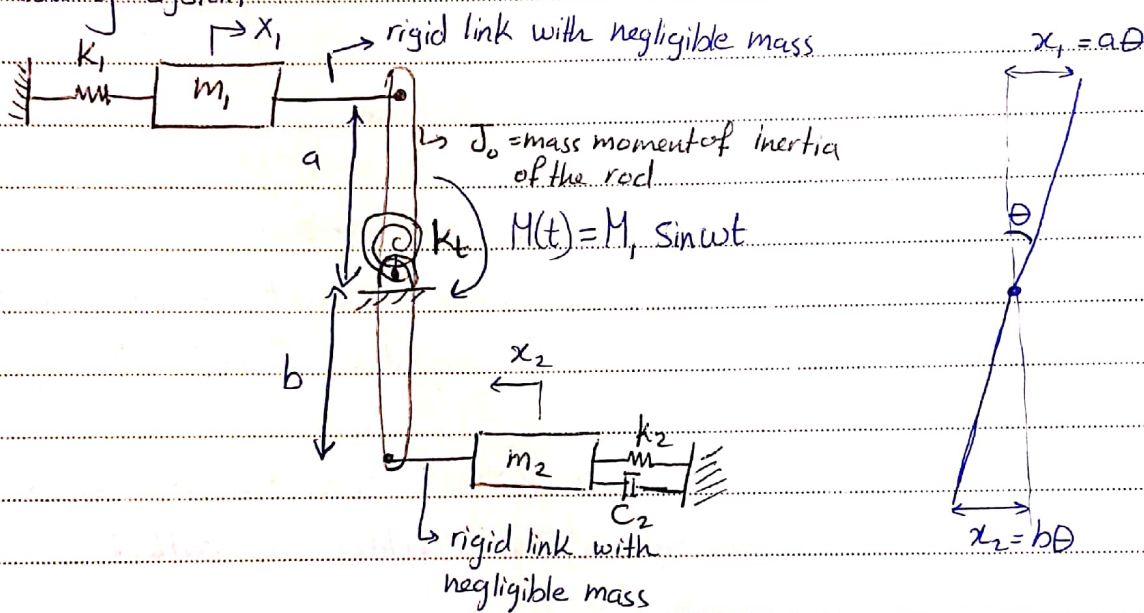 X₁
rigid link with negligible mass
x₁ = aθ
K₁
m₁
a
J₀ = mass moment of inertia
of the rod
θ
kt
M(t) = M₁ sinωt
b
x₂
k₂
m₂
C₂
x₂ = bθ
rigid link with
negligible mass